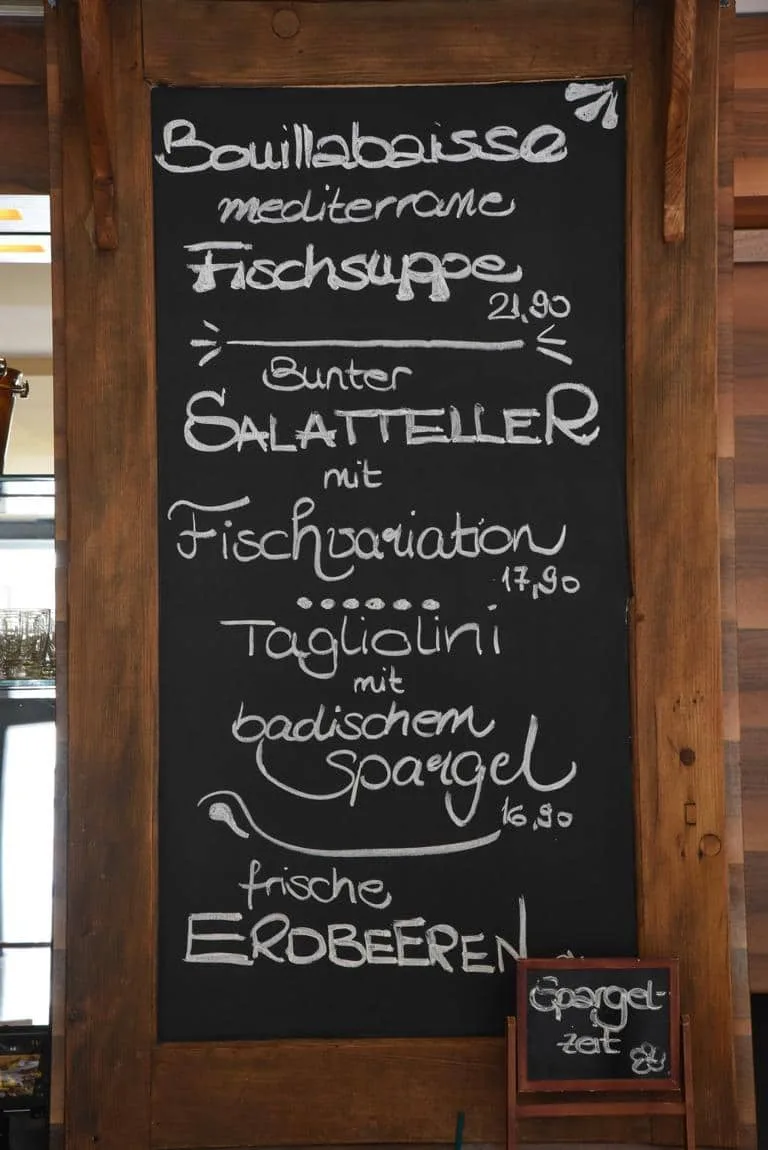 Bouillabaisse
mediterrane
Fischsuppe
21,90
Bunter
SALATTELLER
mit
Fischvariation
17,90
Tagliolini
mit
badischem
Spargel
16,90
frische
ERDBEEREN
Spargel-
zeit